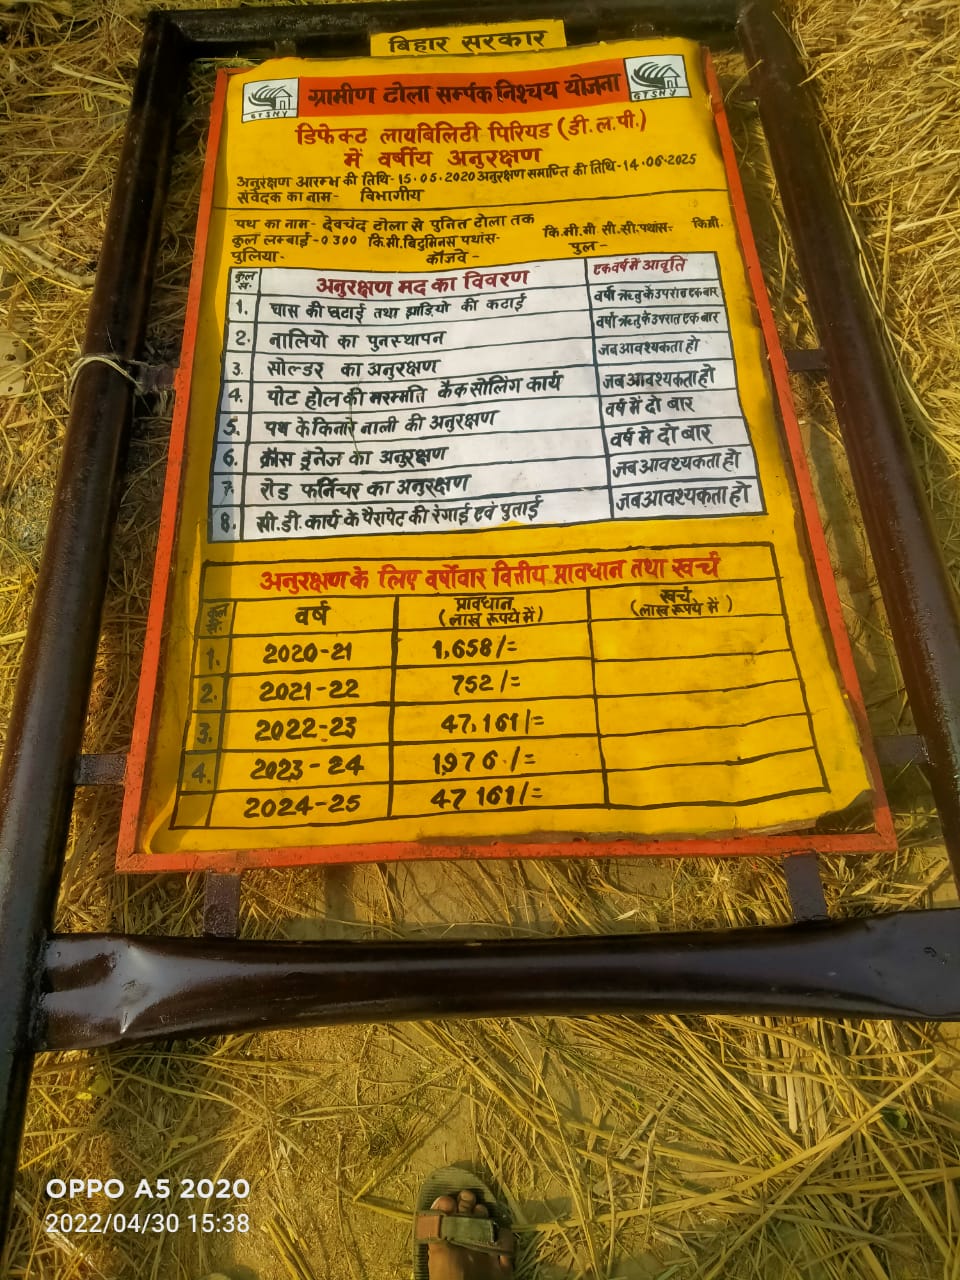 बिहार सरकार
ग्रामीण टोला सर्म्पक निश्चय योजना
GTSNY
GTSNY
डिफेक्ट लायबिलिटी पिरियड (डी.ल.पी.)
में वर्षीय अनुरक्षण
अनुरक्षण आरम्भ की तिथि-15.05.2020 अनुरक्षण समाप्ति की तिथि-14.06.2025
संवेदक का नाम- विभागीय
पथ का नाम- देवचंद टोला से पुनित टोला तक
कुल लम्बाई-0300 कि.मी. बिटुमिनस पथांस- कि.मी. मी. सी. सी. पथांस- कि.मी.
पुलिया- कौजवे- पुल-
अनुरक्षण मद का विवरण एक वर्ष में आवृति
1. घास की छटाई तथा झाड़ियो की कटाई वर्षा ऋतु के उपरांत एक बार
2. नालियो का पुनस्थापन वर्षा ऋतु के उपरांत एक बार
3. सोल्डर का अनुरक्षण जब आवश्यकता हो
4. पोट होल की मरम्मति कैक सीलिंग कार्य जब आवश्यकता हो
5. पथ के किनारे नाली की अनुरक्षण वर्ष में दो बार
6. क्रौस ड्रेनेज का अनुरक्षण वर्ष में दो बार
7. रोड फर्निचर का अनुरक्षण जब आवश्यकता हो
8. सी.डी. कार्य के पैरापेट की रंगाई एवं पुताई जब आवश्यकता हो
अनुरक्षण के लिए वर्षोवार वित्तीय प्रावधान तथा खर्च
वर्ष प्रावधान (लाख रूपये में) खर्च (लाख रूपये में)
1. 2020-21 1,658/=
2. 2021-22 752/=
3. 2022-23 47,161/=
4. 2023-24 1976/=
2024-25 47161/=
OPPO A5 2020
2022/04/30 15:38